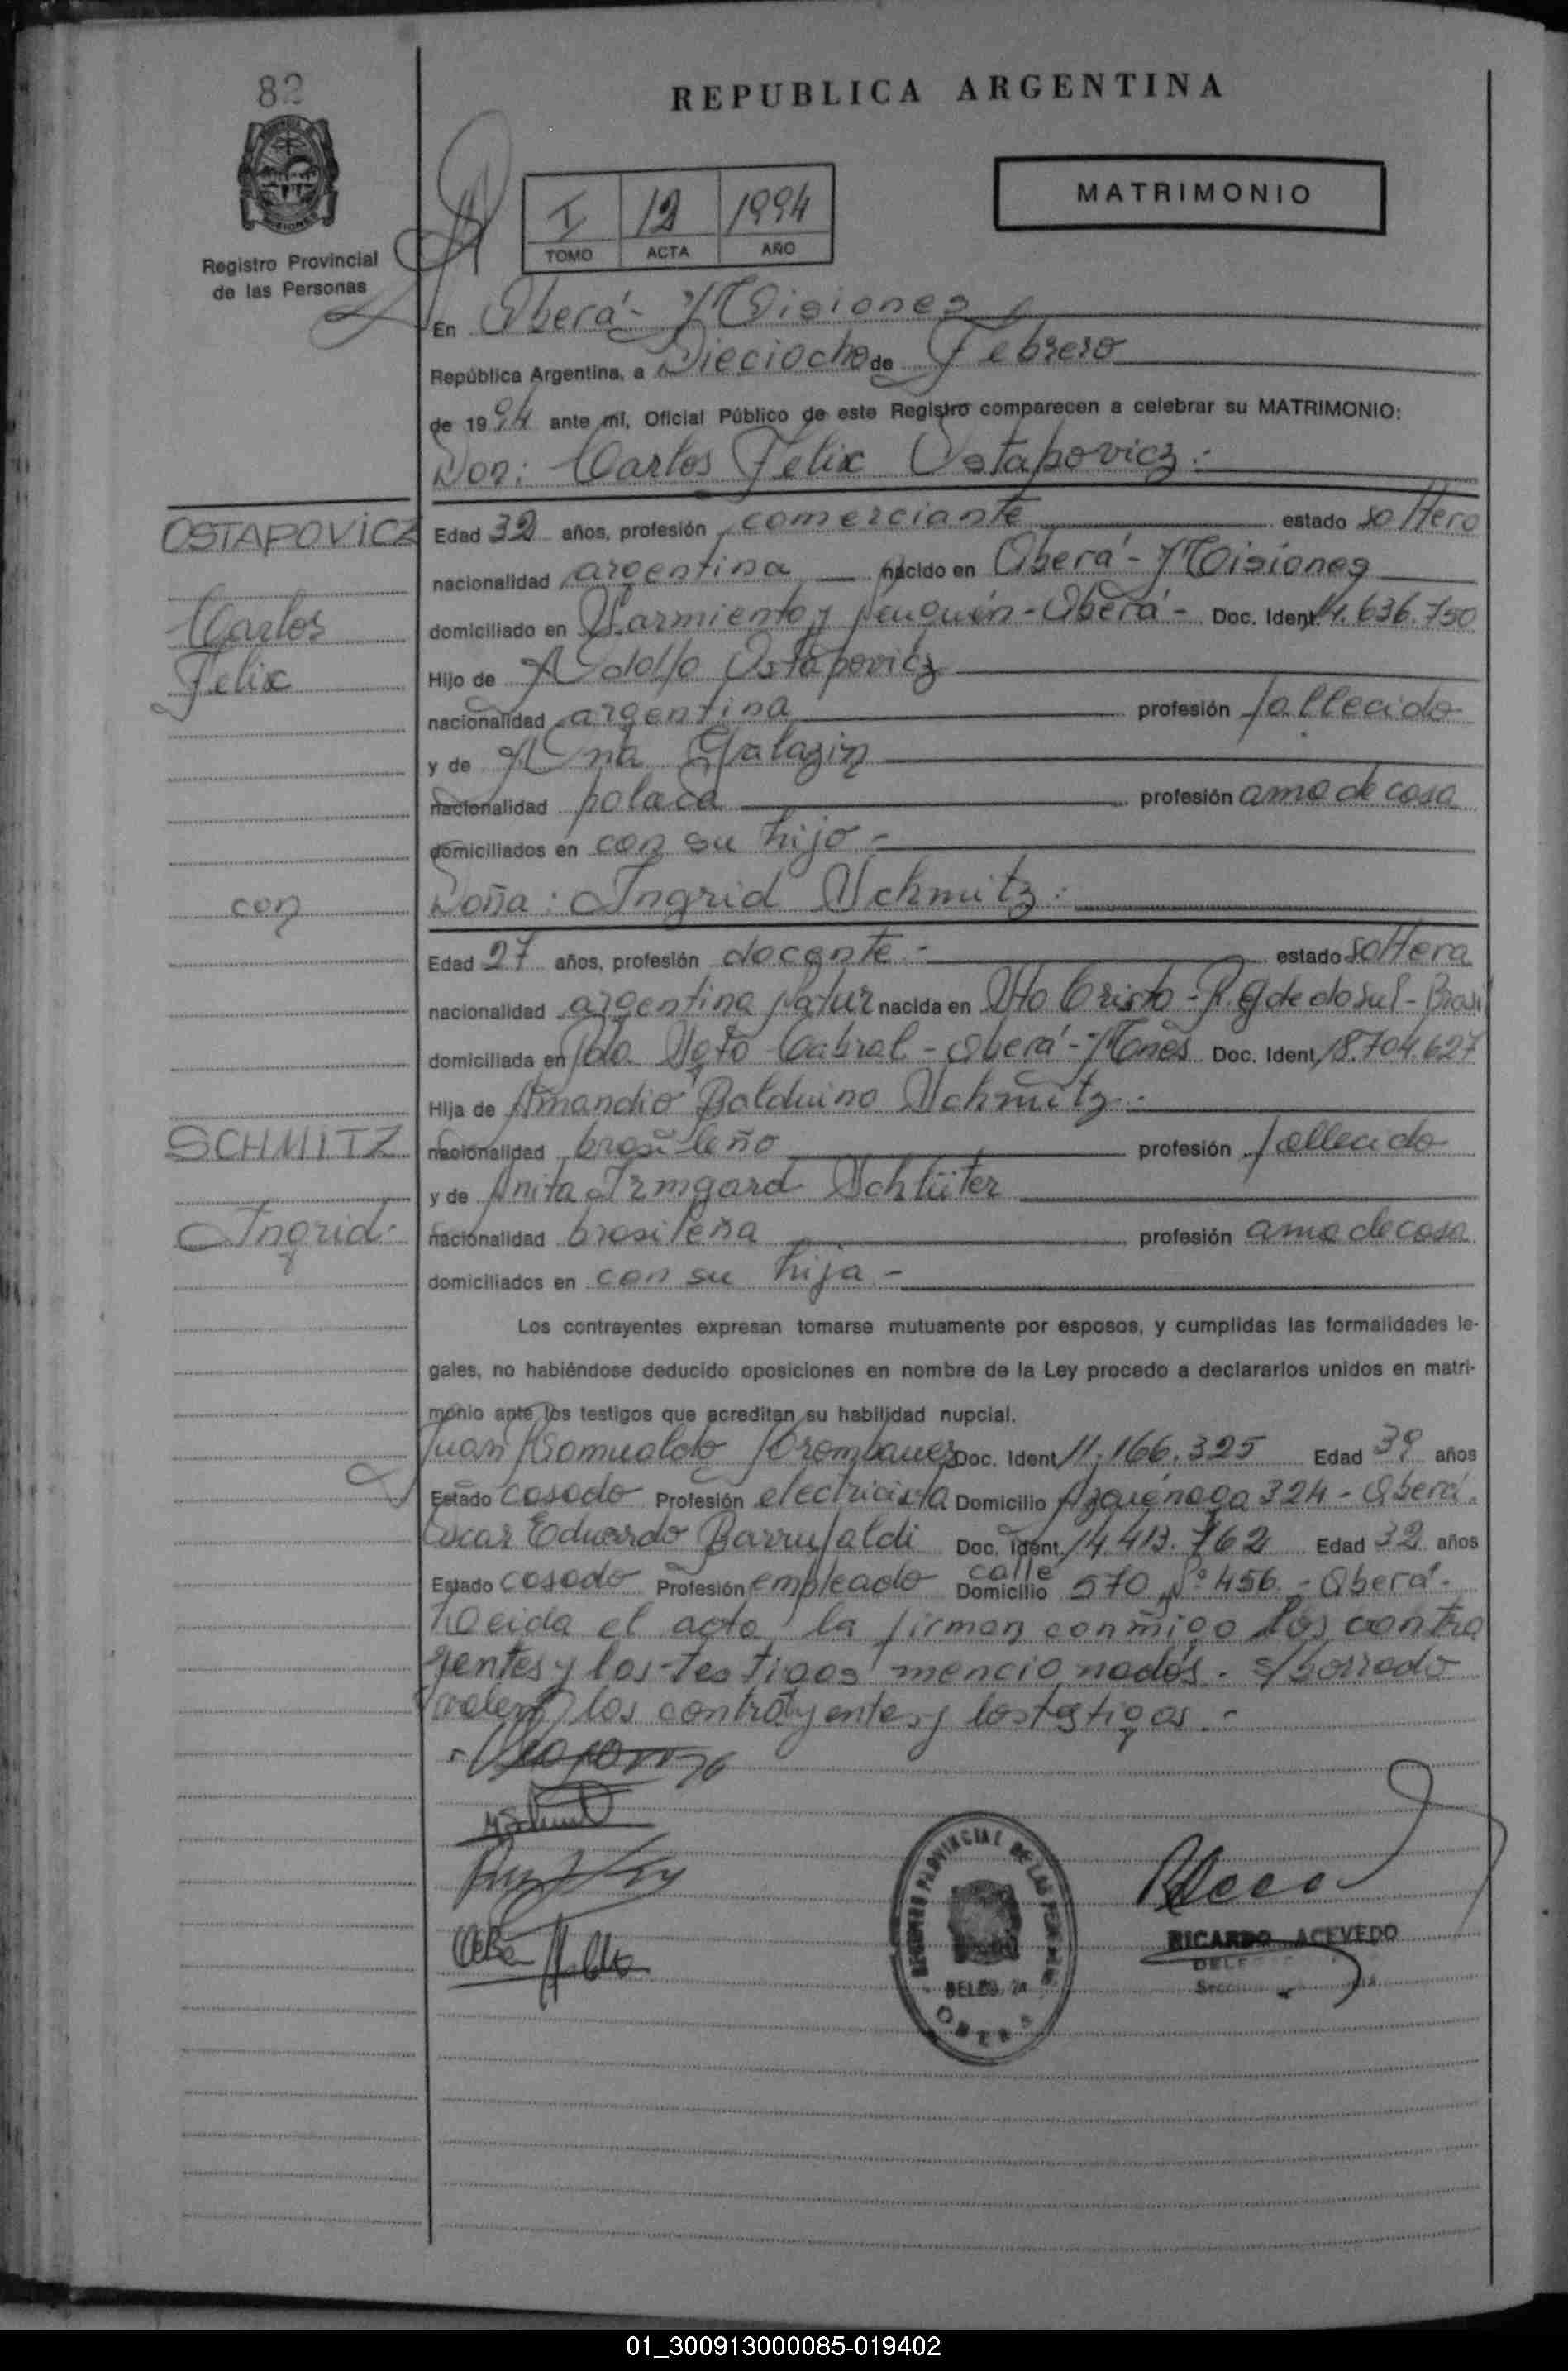 82
REPUBLICA ARGENTINA
MATRIMONIO
I 12 1994
TOMO ACTA AÑO
Registro Provincial
de las Personas
En Oberá - Misiones
República Argentina, a Dieciocho de Febrero
de 1994 ante mí, Oficial Público de este Registro comparecen a celebrar su MATRIMONIO:
Don: Carlos Felix Ostapovicz.-
OSTAPOVICZ
Carlos
Felix
Edad 32 años, profesión comerciante estado soltero
nacionalidad argentina nacido en Oberá - Misiones
domiciliado en Sarmiento y Neuquén - Oberá - Doc. Ident. 14.636.750
Hijo de Adolfo Ostapovicz
nacionalidad argentina profesión fallecido
y de Ana
nacionalidad polaca profesión ama de casa
domiciliados en con su hijo -
con
Doña: Ingrid Schmitz.
Edad 27 años, profesión docente.- estado soltera
nacionalidad argentina natur nacida en Sto Cristo - R. g de do sul - Brasil
domiciliada en Pdo. Sgto Cabral - Oberá - Mnes Doc. Ident. 18.704.627
Hija de Amandio Balduino Schmitz.-
SCHMITZ
Ingrid.
nacionalidad brasileño profesión fallecido
y de Anita Irmgard Schlüter
nacionalidad brasileña profesión ama de casa
domiciliados en con su hija -
Los contrayentes expresan tomarse mutuamente por esposos, y cumplidas las formalidades le-
gales, no habiéndose deducido oposiciones en nombre de la Ley procedo a declararlos unidos en matri-
monio ante los testigos que acreditan su habilidad nupcial.
Juan Romualdo Doc. Ident. 11.166.325 Edad 39 años
Estado casado Profesión electricista Domicilio Azcuénaga 324 - Oberá.
Oscar Eduardo Barrufaldi Doc. Ident. 14.413.762 Edad 32 años
Estado casado Profesión empleado Domicilio calle 570 Nº 456 - Oberá -
Leida el acta la firman conmigo los contra
yentes y los testigos mencionados. s/borrado
valen los contrayentes y los testigos.-
REGISTRO PROVINCIAL DE LAS PERSONAS
OBERA
RICARDO ACEVEDO
01_300913000085-019402